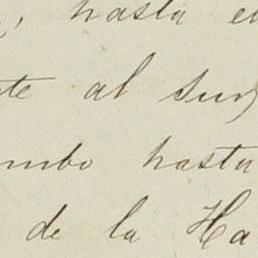 , hasta e
te al sur,
mbo hasta
de la Ha